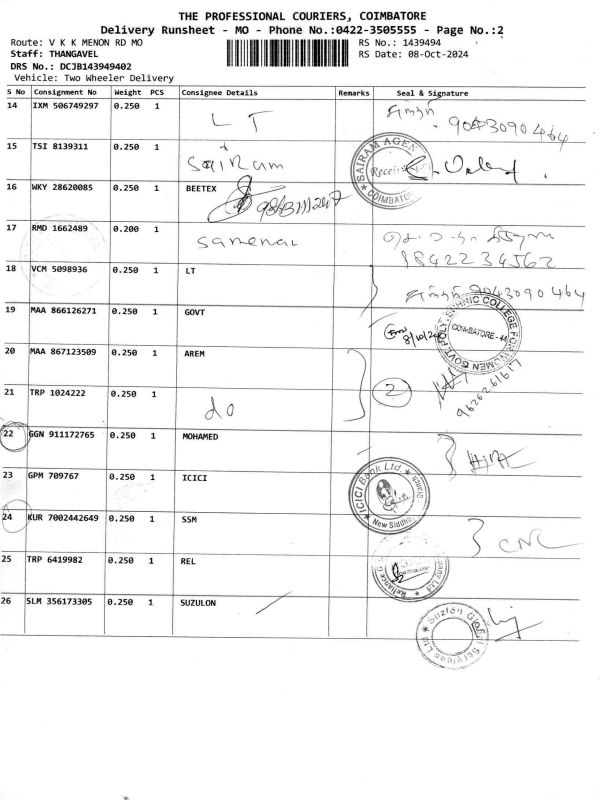 THE PROFESSIONAL COURIERS, COIMBATORE
Delivery Runsheet - MO - Phone No.:0422-3505555 - Page No.:2
Route: V K K MENON RD MO RS No.: 1439494
Staff: THANGAVEL RS Date: 08-Oct-2024
DRS No.: DCJB143949402
Vehicle: Two Wheeler Delivery
S No Consignment No Weight PCS Consignee Details Remarks Seal & Signature
14 IXM 506749297 0.250 1 LT 9043090464
15 TSI 8139311 0.250 1 Sai Ram SAIRAM AGEN COIMBATO
16 WKY 28620085 0.250 1 BEETEX
17 RMD 1662489 0.200 1
18 VCM 5098936 0.250 1 LT 9043090464
19 MAA 866126271 0.250 1 GOVT 8/10/24 COIMBATORE - 44
20 MAA 867123509 0.250 1 AREM
21 TRP 1024222 0.250 1 do 2 9626261617
22 GGN 911172765 0.250 1 MOHAMED
23 GPM 709767 0.250 1 ICICI ICICI Bank Ltd. New Siddha
24 KUR 7002442649 0.250 1 SSM CNC
25 TRP 6419982 0.250 1 REL Reliance
26 SLM 356173305 0.250 1 SUZULON Suzlon Global Services Ltd